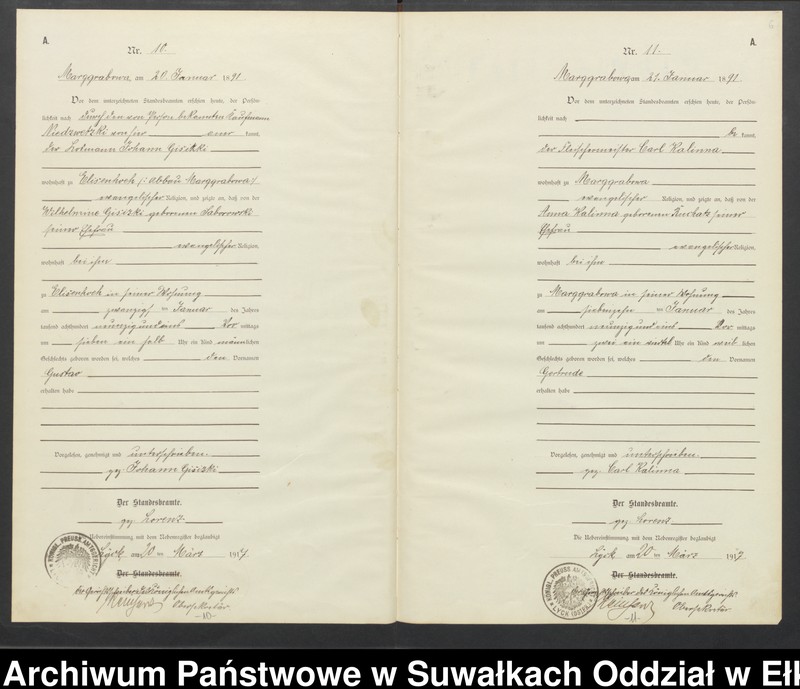 A.
Nr. 10.
Marggrabowa am 20. Januar 1891
Vor dem unterzeichneten Standesbeamten erschien heute, der Persön-
lichkeit nach durch den von Person bekannten Kaufmann
kannt,
der Johann
wohnhaft zu (: Abbau Marggrabowa :)
evangelischer Religion, und zeigte an, daß von der
Wilhelmine geborenen
seiner Ehefrau
evangelischer Religion,
wohnhaft bei ihm
zu in seiner Wohnung
am zwanzigsten Januar des Jahres
tausend achthundert neunzig und eins Vor mittags
um sieben ein halb Uhr ein Kind männlichen
Geschlechts geboren worden sei, welches den Vornamen
Gustav
erhalten habe
Vorgelesen, genehmigt und unterschrieben.
gez. Johann
Der Standesbeamte.
gez. Lorenz.
Uebereinstimmung mit dem Nebenregister beglaubigt
Lyck am 20 ten März 1917
Der Standesbeamte.
Gerichtsschreiber des Königlichen Amtsgerichts
Obersekretär
-10-
A.
Nr. 11.
Marggrabowa am 21. Januar 1891
Vor dem unterzeichneten Standesbeamten erschien heute, der Persön-
lichkeit nach
be kannt,
der Fleischermeister Carl Kalinna
wohnhaft zu Marggrabowa
evangelischer Religion, und zeigte an, daß von der
Anna Kalinna geborenen seiner
Ehefrau
evangelischer Religion,
wohnhaft bei ihm
zu Marggrabowa in seiner Wohnung
am siebenzehn ten Januar des Jahres
tausend achthundert neunzig und eins Vor mittags
um zwei ein viertel Uhr ein Kind weib lichen
Geschlechts geboren worden sei, welches den Vornamen
Gertrude
erhalten habe
Vorgelesen, genehmigt und unterschrieben.
gez. Carl Kalinna
Der Standesbeamte.
gez. Lorenz
Die Uebereinstimmung mit dem Nebenregister beglaubigt
Lyck am 20 ten März 1917
Der Standesbeamte.
Gerichtsschreiber des Königlichen Amtsgerichts
Obersekretär
-11-
KÖNIGL. PREUSS. AMTSGERICHT
LYCK
Archiwum Państwowe w Suwałkach Oddział w Ełk